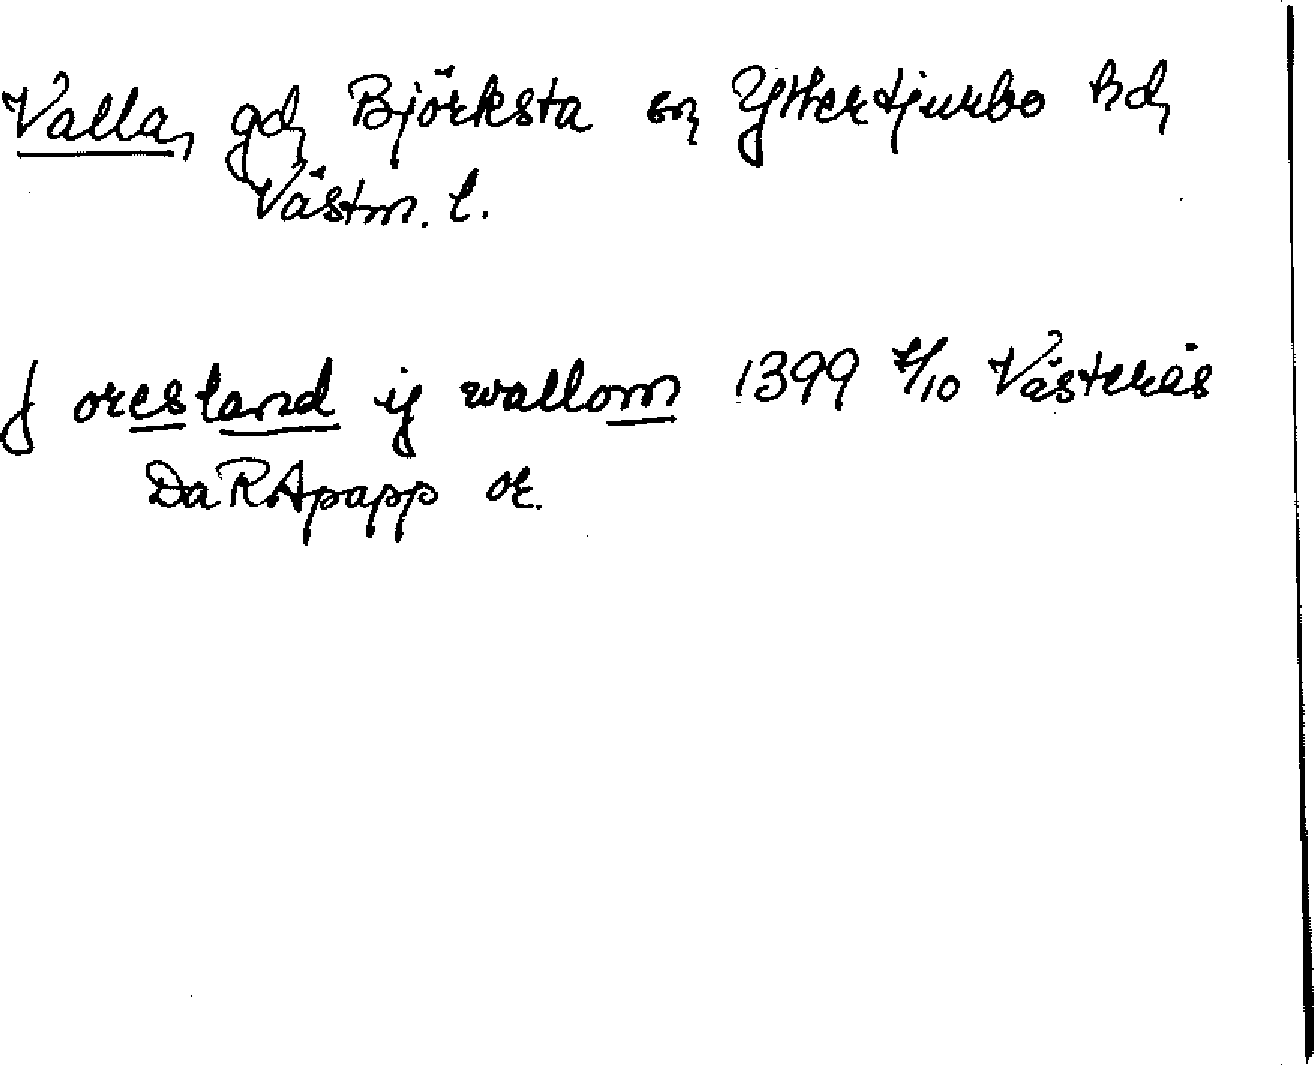 Valla, gd, Björksta sn, Yttertjurbo hd,
Västm. l.
J oresland ij wallom 1399 /10 Västerås
DaRApapp or.